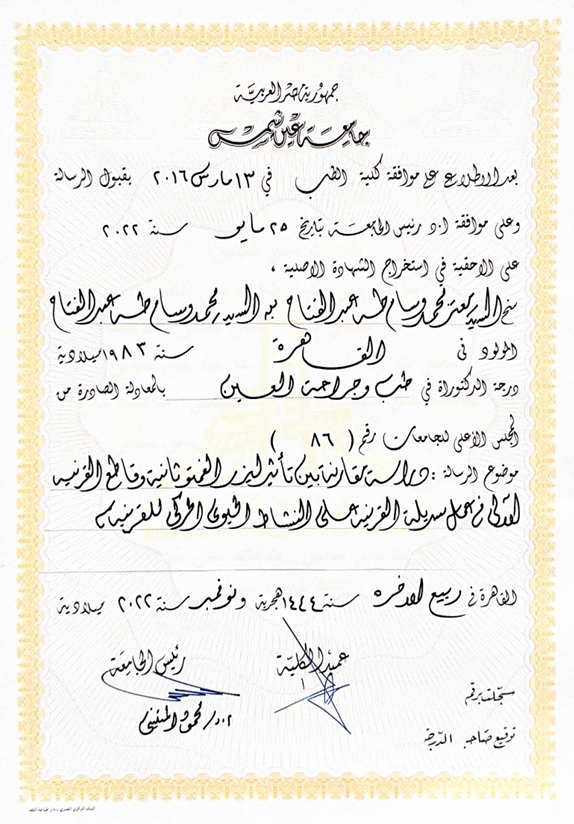 جمهورية مصر العربية
جامعة عين شمس
بعد الاطلاع على موافقة كلية الطب في ١٣ مارس ٢٠١٦ بقبول الرسالة
وعلى موافقة ا.د رئيس الجامعة بتاريخ ٢٥ مايو سنة ٢٠٢٢
على الاحقية في استخراج الشهادة الاصلية ،
منح السيد / معتز محمد وسام طه عبد الفتاح ابن السيد / محمد وسام طه عبد الفتاح
المولود في القاهرة سنة ١٩٨٣ ميلادية
درجة الدكتوراة في طب وجراحة العين بالمعادلة الصادرة من
المجلس الأعلى للجامعات رقم ( ٨٦ )
موضوع الرسالة : دراسة مقارنة بين تأثير ليزر الفمتو ثانية وقاطع القرنية
الآلى في عمل سديلة القرنية على النشاط الحيوى الحركى للقرنية
القاهرة في ربيع الآخرة سنة ١٤٤٤ هجرية ونوفمبر سنة ٢٠٢٢ ميلادية
عميد الكلية رئيس الجامعة
سجلت برقم
ا.د/ محمود المتينى
توقيع صاحب الدرجة
البنك المركزي المصري - دار طباعة النقد